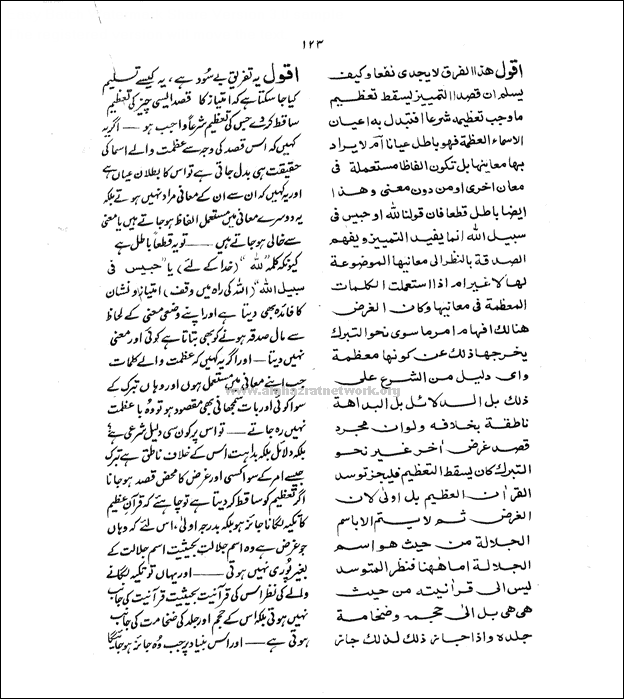 ۱۲۳
اقول هذا الفرق لا يجدى نفعا وكيف
يسلم ان قصد التمييز يسقط تعظيم
ما وجب تعظيمه شرعا افتبدل به اعيان
الاسماء العظمة فهو باطل عيانا ام لا يراد
بها معاينها بل تكون الفاظا مستعملة فى
معان اخرى او من دون معنى وهذا
ايضا باطل قطعا فان قولنا لله او حبيس فى
سبيل الله انما يفيد التمييز ويفهم
الصدقة بالنظر الى معانيها الموضوعة
لها لا غير اما اذا استعملت الكلمات
المعظمة فى معانيها وكان الغرض
هنالك افهام امر ما سوى نحو التبرك
يخرجها ذلك عن كونها معظمة
واى دليل من الشرع على
ذلك بل الدلائل بل البداهة
ناطقة بخلافه ولو ان مجرد
قصد غرض اٰخر غير نحو
التبرك كان يسقط التعظيم فليجز توسد
القراٰن العظيم بل اولى لان
الغرض ثم لا يتم الا باسم
الجلالة من حيث هو اسم
الجلالة اما ههنا فنظر المتوسد
ليس الى قراٰنيته من حيث
هى هى بل الى حجمه وضخامة
جلده واذا جاز ذلك لذلك جاز
اقول یہ تفریق بے سُود ہے ، یہ کیسے تسلیم
کیا جا سکتا ہے کہ امتیاز کا قصد ایسی چیز کی تعظیم
ساقط کر دے جس کی تعظیم شرعاً واجب ہو — اگر یہ
کہیں کہ اس قصد کی وجہ سے عظمت والے اسما کی
حقیقت ہی بدل جاتی ہے تو اس کا بطلان عیاں ہے
اور یہ کہیں کہ ان سے ان کے معانی مراد نہیں ہوتے بلکہ
یہ دوسرے معانی میں مستعمل الفاظ ہو جاتے ہیں یا معنی
سے خالی ہو جاتے ہیں — تو یہ قطعاً باطل ہے
کیونکہ کلمہ "للہ" (خدا کے لئے) یا "حبیس فی
سبیل اللہ" (اللہ کی راہ میں وقف) امتیاز و نشان
کا فائدہ بھی دیتا ہے اور اپنے وضعی معنی کے لحاظ
سے مال صدقہ ہونے کو بھی بتاتا ہے کوئی اور معنی
نہیں دیتا — اور اگر یہ کہیں کہ عظمت والے کلمات
جب اپنے معانی میں مستعمل ہوں اور وہاں تبرک کے
سوا کوئی اور بات سمجھانی بھی مقصود ہو تو وہ با عظمت
نہیں رہ جاتے — تو اس پر کون سی دلیل شرعی ہے
بلکہ دلائل بلکہ بداہت اس کے خلاف ناطق ہے تبرک
جیسے امر کے سوا کسی اور غرض کا محض قصد ہو جانا
اگر تعظیم کو ساقط کر دیتا ہے تو چاہئے کہ قرآنِ عظیم
کا تکیہ لگانا جائز ہو بلکہ بدرجہ اولیٰ ، اس لئے کہ وہاں
جو غرض ہے وہ اسم جلالت بحیثیت اسم جلالت کے
بغیر پُوری نہیں ہوتی — اور یہاں تو تکیہ لگانے
والے کی نظر اس کی قرآنیت بحیثیت قرآنیت کی جانب
نہیں ہوتی بلکہ اس کے حجم اور جلد کی ضخامت کی جانب
ہوتی ہے — اور اس بنیاد پر جب وہ جائز ہو جائیگا
www.alahazratnetwork.org